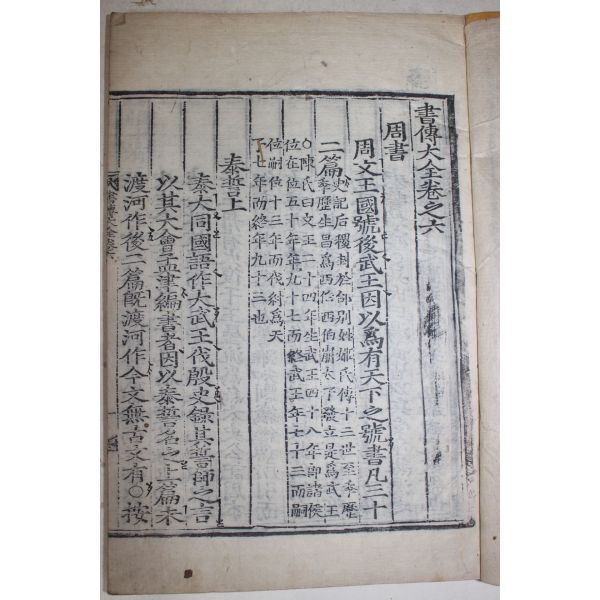 書傳大全卷之六
周書
周文王國號後武王因以爲有天下之號書凡三十
二篇
史記后稷封於邰別姓姬氏傳十三世至季歷
季歷生昌爲西伯西伯崩太子發立是爲武王
○陳氏曰文王二十四年生武王四十八年即諸侯
位在位五十年年九十七而終武王年七十三而嗣
位嗣位十三年而伐紂爲天
子七年而終年九十三也
泰誓上
泰大同國語作大武王伐殷史錄其誓師之言
以其大會孟津編書者因以泰誓名之上篇未
渡河作後二篇旣渡河作今文無古文有○按
書傳大全卷六